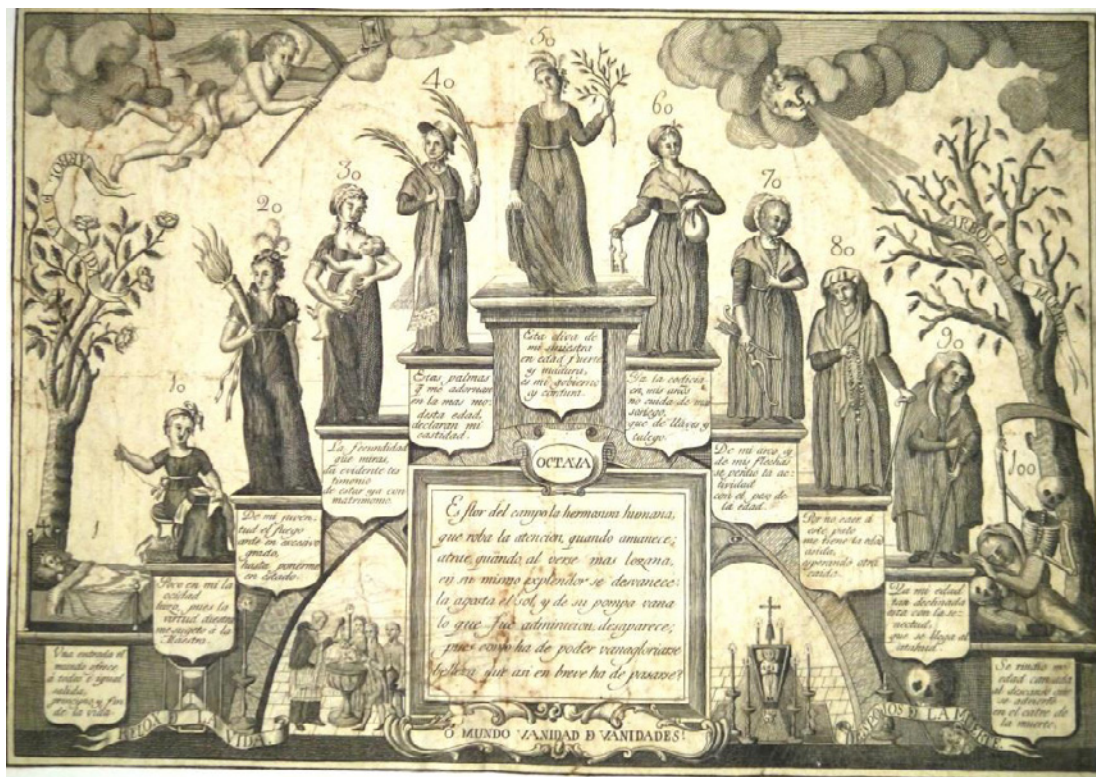 ARBOL D LA VIDA
10
20
30
40
50
60
70
80
90
100
ARBOL D LA MUERTE
Una entrada el
mundo ofrece
á todos é igual
salida,
principio y fin
de la vida
Poco en mi la
ociosidad
pues la
virtud
me sugeto á la
Maestra.
De mi juven-
tud el fuego
arde en
grado,
hasta ponerme
en estado.
La fecundidad
que miras,
da evidente tes
timonio
de estar ya con
matrimonio.
Estas palmas
q me adornan
en la mas mo-
desta edad,
declaran mi
castidad.
Esta oliva de
mi siniestra
en edad fuerte
y madura,
es mi gobierno
y cordura.
Ya la codicia
en mis años
no cuida de mas
sosiego,
que de llaves y
talego.
De mi arco, y
de mis flechas
se perdio la ac-
tividad
con el peso de
la edad.
Por no caer á
este paso
me tiene la edad
asida,
esperando otra
caida.
Ya mi edad
tan declinada
esta con la se-
nectud,
que se llega al
atahud.
Se rindio mi
edad cansada
al descanso que
se advierte
en el catre de
la muerte.
OCTAVA
Es flor del campo la hermosura humana,
que roba la atencion quando amanece;
atrae quando al verse mas lozana,
en su mismo explendor se desvanece:
la agosta el sol, y de su pompa vana
lo que fue admiracion, desaparece;
pues como ha de poder vanagloriarse
belleza que asi en breve ha de pasarse?
RELOX D LA VIDA
O MUNDO VANIDAD D VANIDADES!
DE LA MUERTE